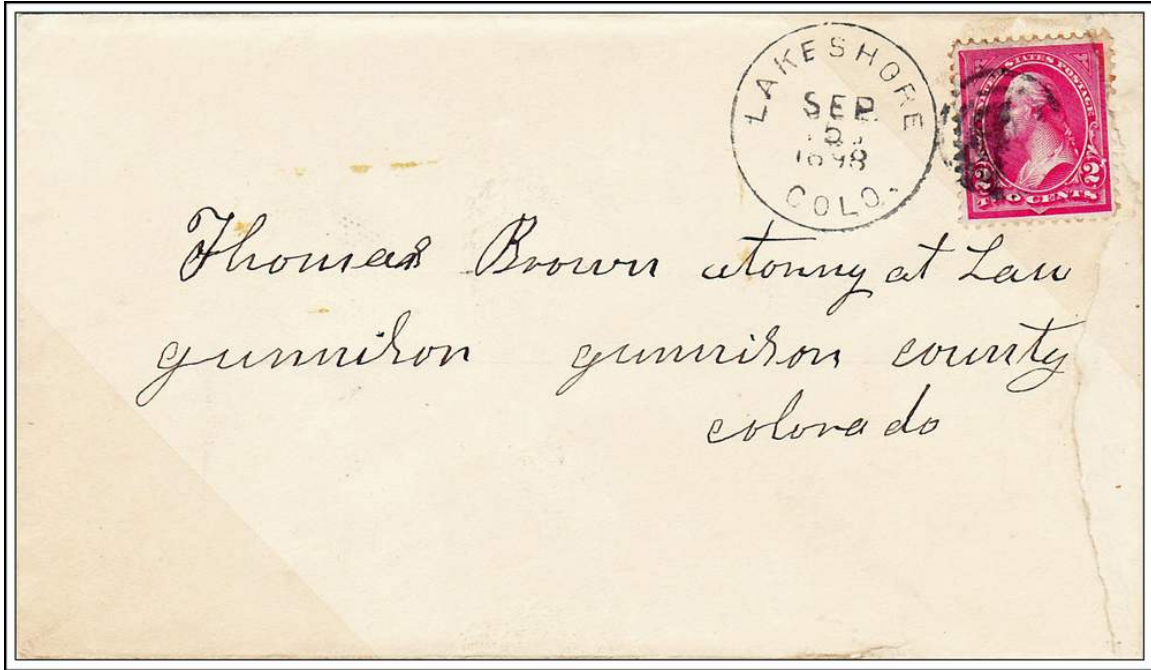 LAKESHORE
SEP
1898
COLO.
UNITED STATES POSTAGE
2 2
TWO CENTS
Thomas Brown atonny at Law
gunnison gunnison county
colorado